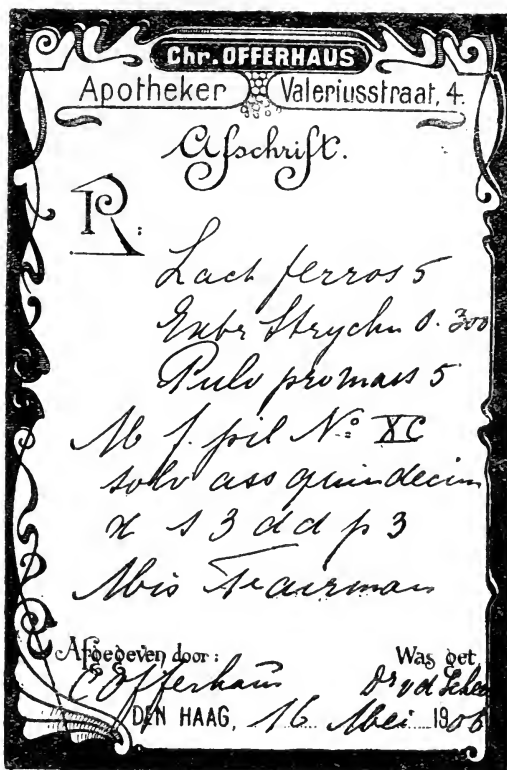 Chr. OFFERHAUS
Apotheker Valeriusstraat, 4.
Afschrift.
R:
Lact ferros 5
Extr Strychn 0.300
Pulv pro mass 5
M f. pil No: XC
solv ass quindecim
d s 3 d d p 3
Afgegeven door: Was get
C Offerhaus Dr v d
DEN HAAG, 16 Mei 1906